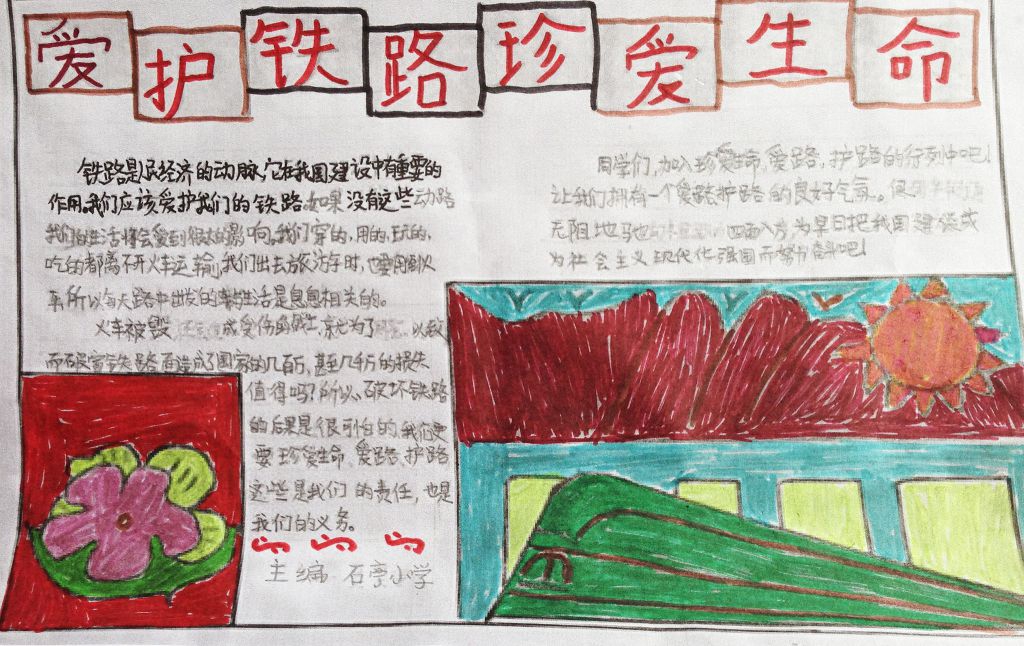 爱护铁路珍爱生命
铁路是民经济的动脉,它在我国建设中有重要的
作用。我们应该爱护我们的铁路。如果没有这些动路
我们的生活将会受到很大的影响。我们穿的,用的,玩的,
吃的都离不开火车运输,我们出去旅游时,也要用到火
车,所以每天路中出发的和生活是息息相关的。
火车被毁 成受伤 就为了 以致
而破害铁路 造成了国家的几百万,甚至几千万的损失
值得吗?所以,破坏铁路
的后果是很可怕的,我们要
要珍爱生命,爱路、护路
这些是我们的责任,也是
我们的义务。
主编 石亭小学
同学们,加入珍爱生命,爱路,护路的行列中吧!
让我们拥有一个爱路护路的良好气氛。
无阻地驰 四面八方,为早日把我国建设成
为社会主义现代化强国而努力奋斗吧!